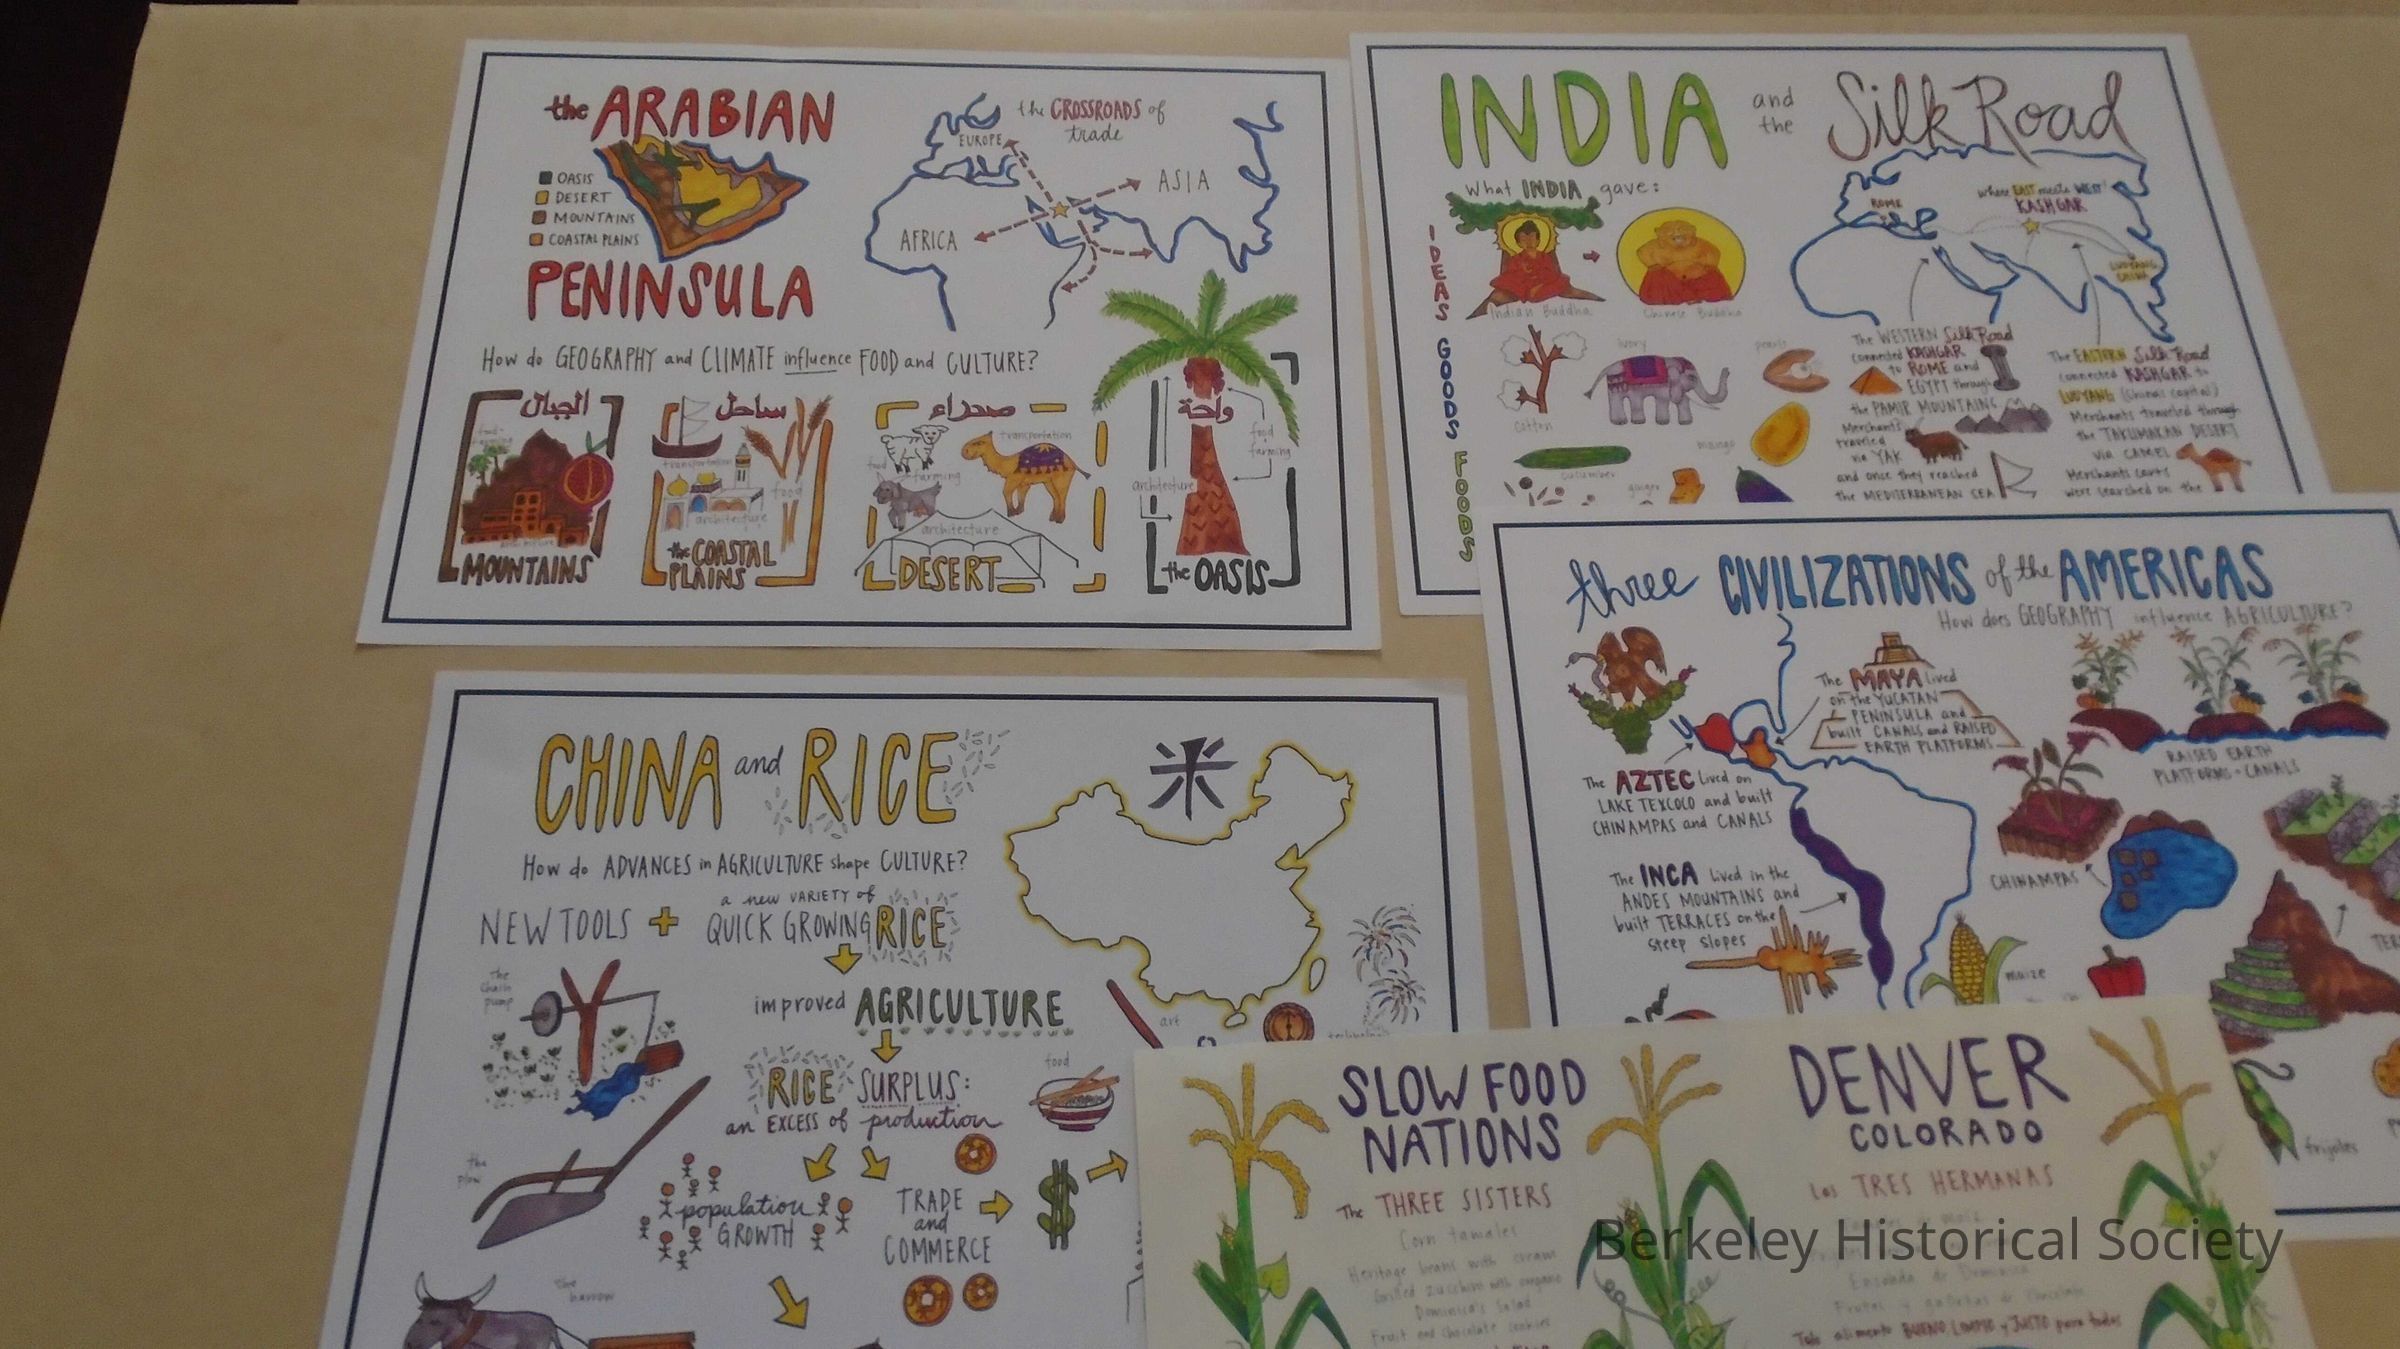 the ARABIAN
PENINSULA
OASIS
DESERT
MOUNTAINS
COASTAL PLAINS
the CROSSROADS of
trade
EUROPE
ASIA
AFRICA
How do GEOGRAPHY and CLIMATE influence FOOD and CULTURE?
الجبال
MOUNTAINS
ساحل
transportation
food
architecture
the COASTAL
PLAINS
صحراء
transportation
food
farming
architecture
DESERT
واحة
food
farming
architecture
the OASIS
INDIA and the Silk Road
What INDIA gave:
IDEAS GOODS FOODS
Indian Buddha
Chinese Buddha
cotton
ivory
pearls
cucumber
mango
ginger
ROME
where EAST meets WEST!
KASHGAR
LUOYANG
CHINA
The WESTERN Silk Road
connected KASHGAR
to ROME and
EGYPT through
the PAMIR MOUNTAINS
Merchants
traveled
via YAK
and once they reached
the MEDITERRANEAN SEA
The EASTERN Silk Road
connected KASHGAR to
LUOYANG (China's capital)
Merchants traveled through
the TAKLIMAKAN DESERT
via CAMEL
Merchants carts
were searched on the
three CIVILIZATIONS of the AMERICAS
How does GEOGRAPHY influence AGRICULTURE?
The MAYA lived
on the YUCATAN
PENINSULA and
built CANALS and RAISED
EARTH PLATFORMS
RAISED EARTH
PLATFORMS + CANALS
The AZTEC lived on
LAKE TEXCOCO and built
CHINAMPAS and CANALS
CHINAMPAS
The INCA lived in the
ANDES MOUNTAINS and
built TERRACES on the
steep slopes
maize
frijoles
CHINA and RICE
米
How do ADVANCES in AGRICULTURE shape CULTURE?
NEW TOOLS + a new VARIETY of
QUICK GROWING RICE
the
chain
pump
improved AGRICULTURE
art
RICE SURPLUS:
an EXCESS of production
food
the
plow
population
GROWTH
TRADE
and
COMMERCE
$
the
harrow
SLOW FOOD
NATIONS
The THREE SISTERS
Corn tamales
Heritage beans with cream
Grilled zucchini with oregano
Dominica's Salad
Fruit and chocolate cookies
DENVER
COLORADO
Las TRES HERMANAS
Ensalada de Dominica
Frutas y galletas de chocolate
alimento BUENO, LIMPIO y JUSTO para todos
Berkeley Historical Society